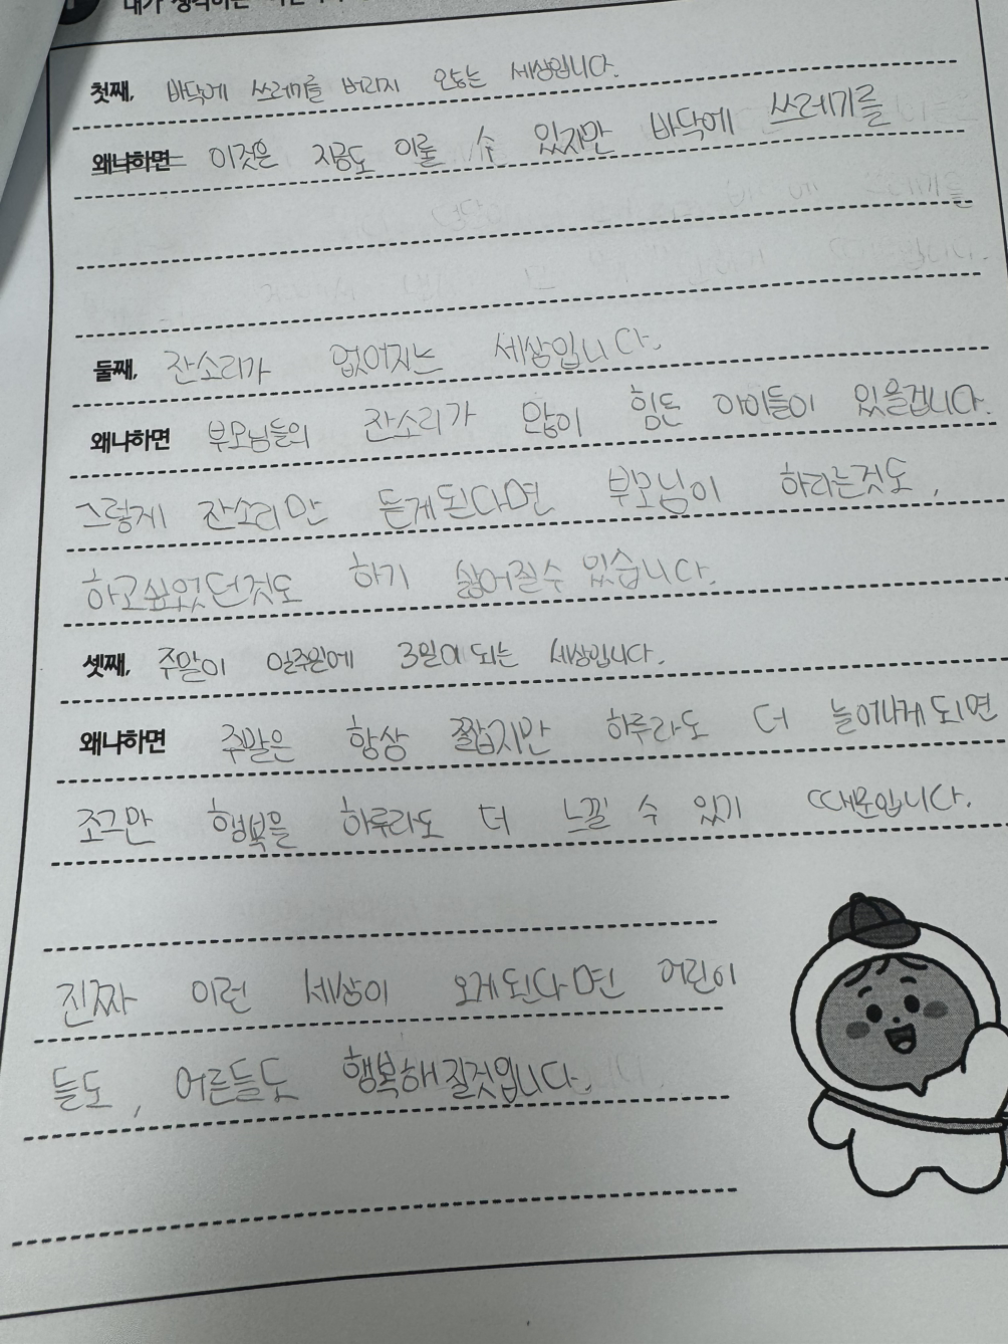 내가 생각하는
첫째, 바닥에 쓰레기를 버리지 않는 세상입니다.
왜냐하면 이것은 지금도 이룰 수 있지만 바닥에 쓰레기를
둘째, 잔소리가 없어지는 세상입니다.
왜냐하면 부모님들의 잔소리가 많이 힘든 아이들이 있을겁니다.
그렇게 잔소리만 듣게된다면 부모님이 하라는것도,
하고싶었던것도 하기 싫어질수 있습니다.
셋째, 주말이 일주일에 3일이 되는 세상입니다.
왜냐하면 주말은 항상 짧지만 하루라도 더 늘어나게 되면
조그만 행복을 하루라도 더 느낄 수 있기 때문입니다.
진짜 이런 세상이 오게된다면 어린이
들도, 어른들도 행복해질것입니다.